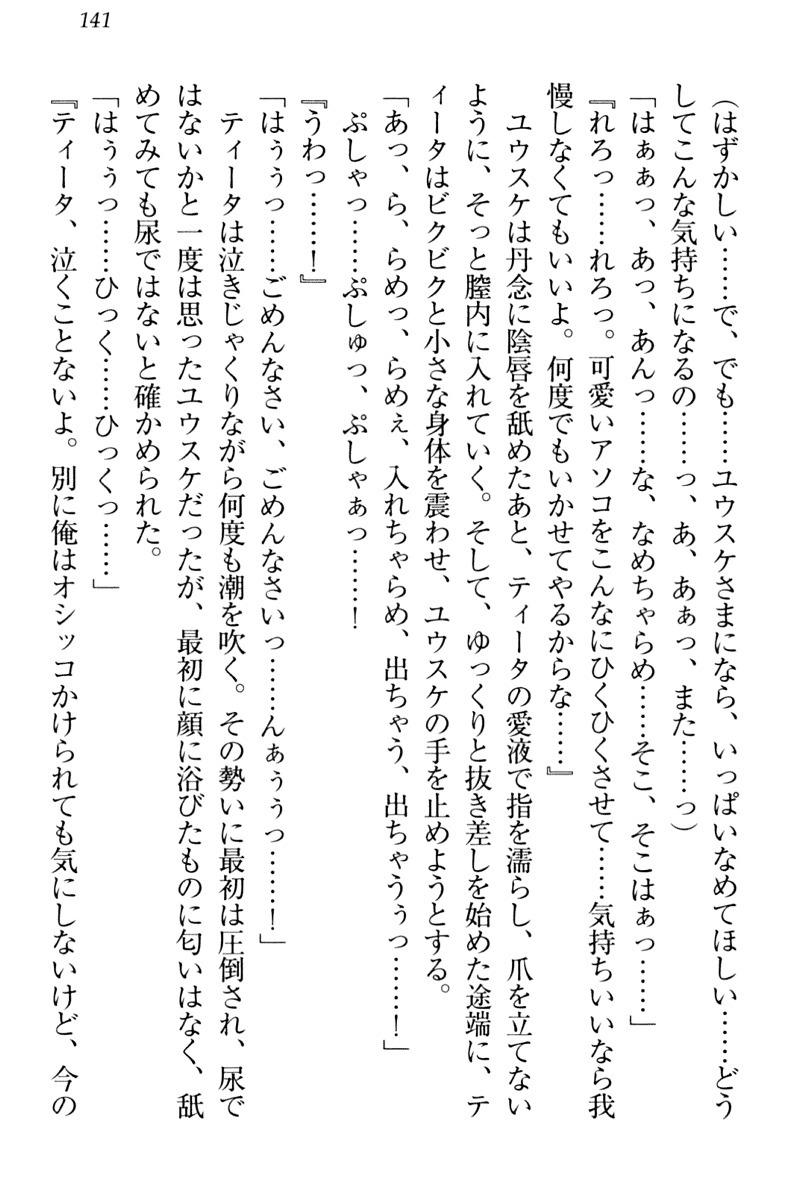 141
(はずかしい……で、でも……ユウスケさまになら、いっぱいなめてほしい……どう
してこんな気持ちになるの……っ、あ、あぁっ、また……っ)
「はぁぁっ、あっ、あんっ……な、なめちゃらめ……そこ、そこはぁっ……」
『れろっ……れろっ。可愛いアソコをこんなにひくひくさせて……気持ちいいなら我
慢しなくてもいいよ。何度でもいかせてやるからな……』
ユウスケは丹念に陰唇を舐めたあと、ティータの愛液で指を濡らし、爪を立てない
ように、そっと膣内に入れていく。そして、ゆっくりと抜き差しを始めた途端に、テ
ィータはビクビクと小さな身体を震わせ、ユウスケの手を止めようとする。
「あっ、ら、らめっ、らめぇ、入れちゃらめ、出ちゃう、出ちゃうぅっ……！」
ぷしゃっ……ぷしゅっ、ぷしゃぁっ……！
『うわっ……！』
「はぅぅっ……ごめんなさい、ごめんなさいっ……んぁぅぅっ……！」
ティータは泣きじゃくりながら何度も潮を吹く。その勢いに最初は圧倒され、尿で
はないかと一度は思ったユウスケだったが、最初に顔に浴びたものに匂いはなく、舐
めてみても尿ではないと確かめられた。
「はぅぅっ……ひっく……ひっくっ……」
『ティータ、泣くことないよ。別に俺はオシッコかけられても気にしないけど、今の